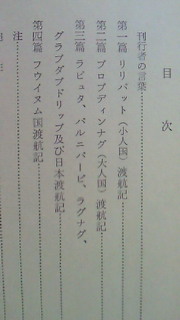 目次
刊行者の言葉……………
第一篇 リリパット（小人国）渡航記……………
第二篇 ブロブディンナグ（大人国）渡航記……
第三篇 ラピュタ、バルニバービ、ラグナグ、
グラブダブドリップ及び日本渡航記……………
第四篇 フウイヌム国渡航記……………
注……………